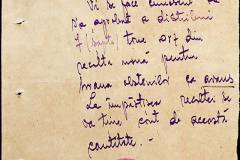 Vi se face cunoscut că
s'a aprobat a distribui
7 (șapte) tone orz din
recolta nouă pentru
hrana obștenilor ca avans
La împărțirea recoltei se
va ține cont de această
cantitate. -